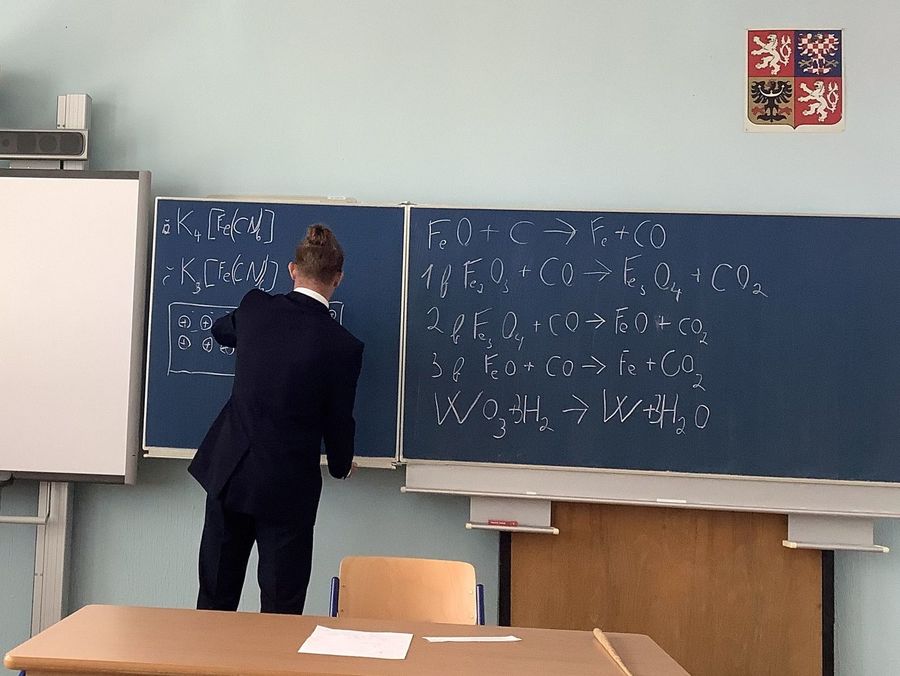 ž K₄[Fe(CN)₆]
č K₃[Fe(CN)₆]
⊕ ⊕ ⊕
⊕ ⊕ ⊕
FeO + C → Fe + CO
1 f Fe₂O₃ + CO → Fe₃O₄ + CO₂
2 f Fe₃O₄ + CO → FeO + CO₂
3 f FeO + CO → Fe + CO₂
WO₃+3H₂ → W+3H₂O